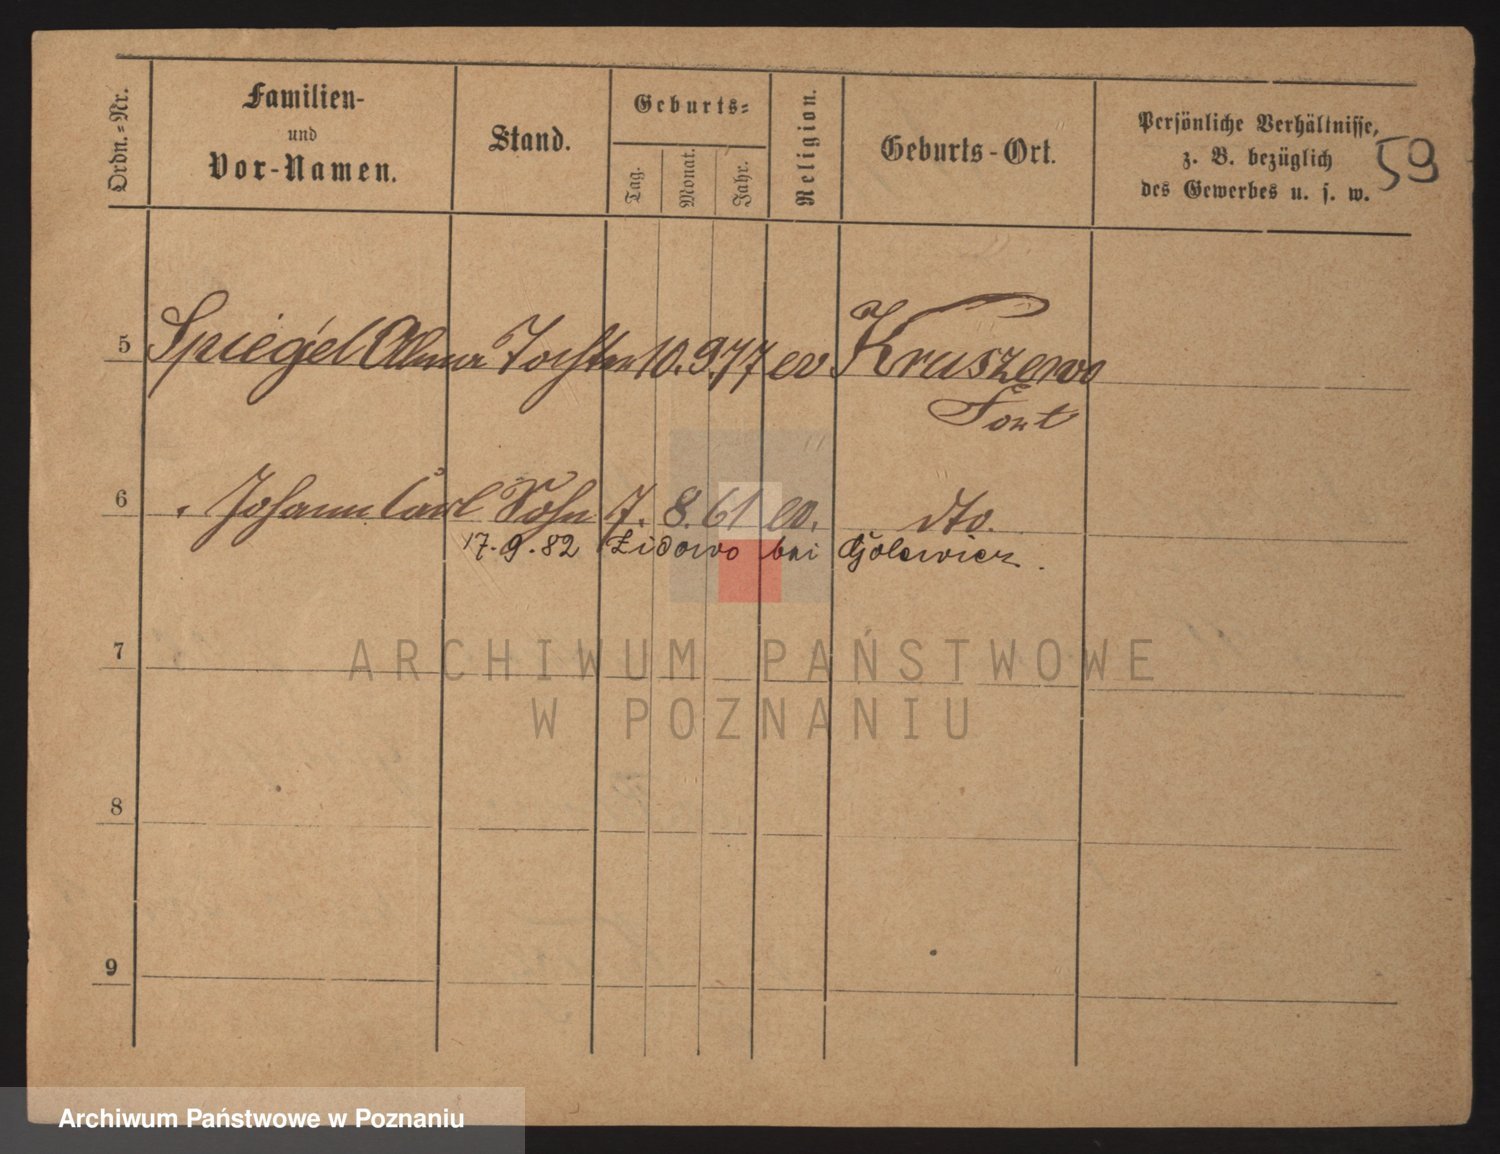 Ordn.-Nr.
Familien-
und
Vor-Namen.
Stand.
Geburts-
Tag.
Monat.
Jahr.
Religion.
Geburts-Ort.
Persönliche Verhältnisse,
z. B. bezüglich
des Gewerbes u. s. w.
59
5 Spiegel Alma Tochter 10. 9. 77 ev Kruszewo
Forst
6 Johann Carl Sohn 7. 8. 61 ev. dto.
17. 9. 82 Zidowo bei
7
8
9
ARCHIWUM PAŃSTWOWE
W POZNANIU
Archiwum Państwowe w Poznaniu